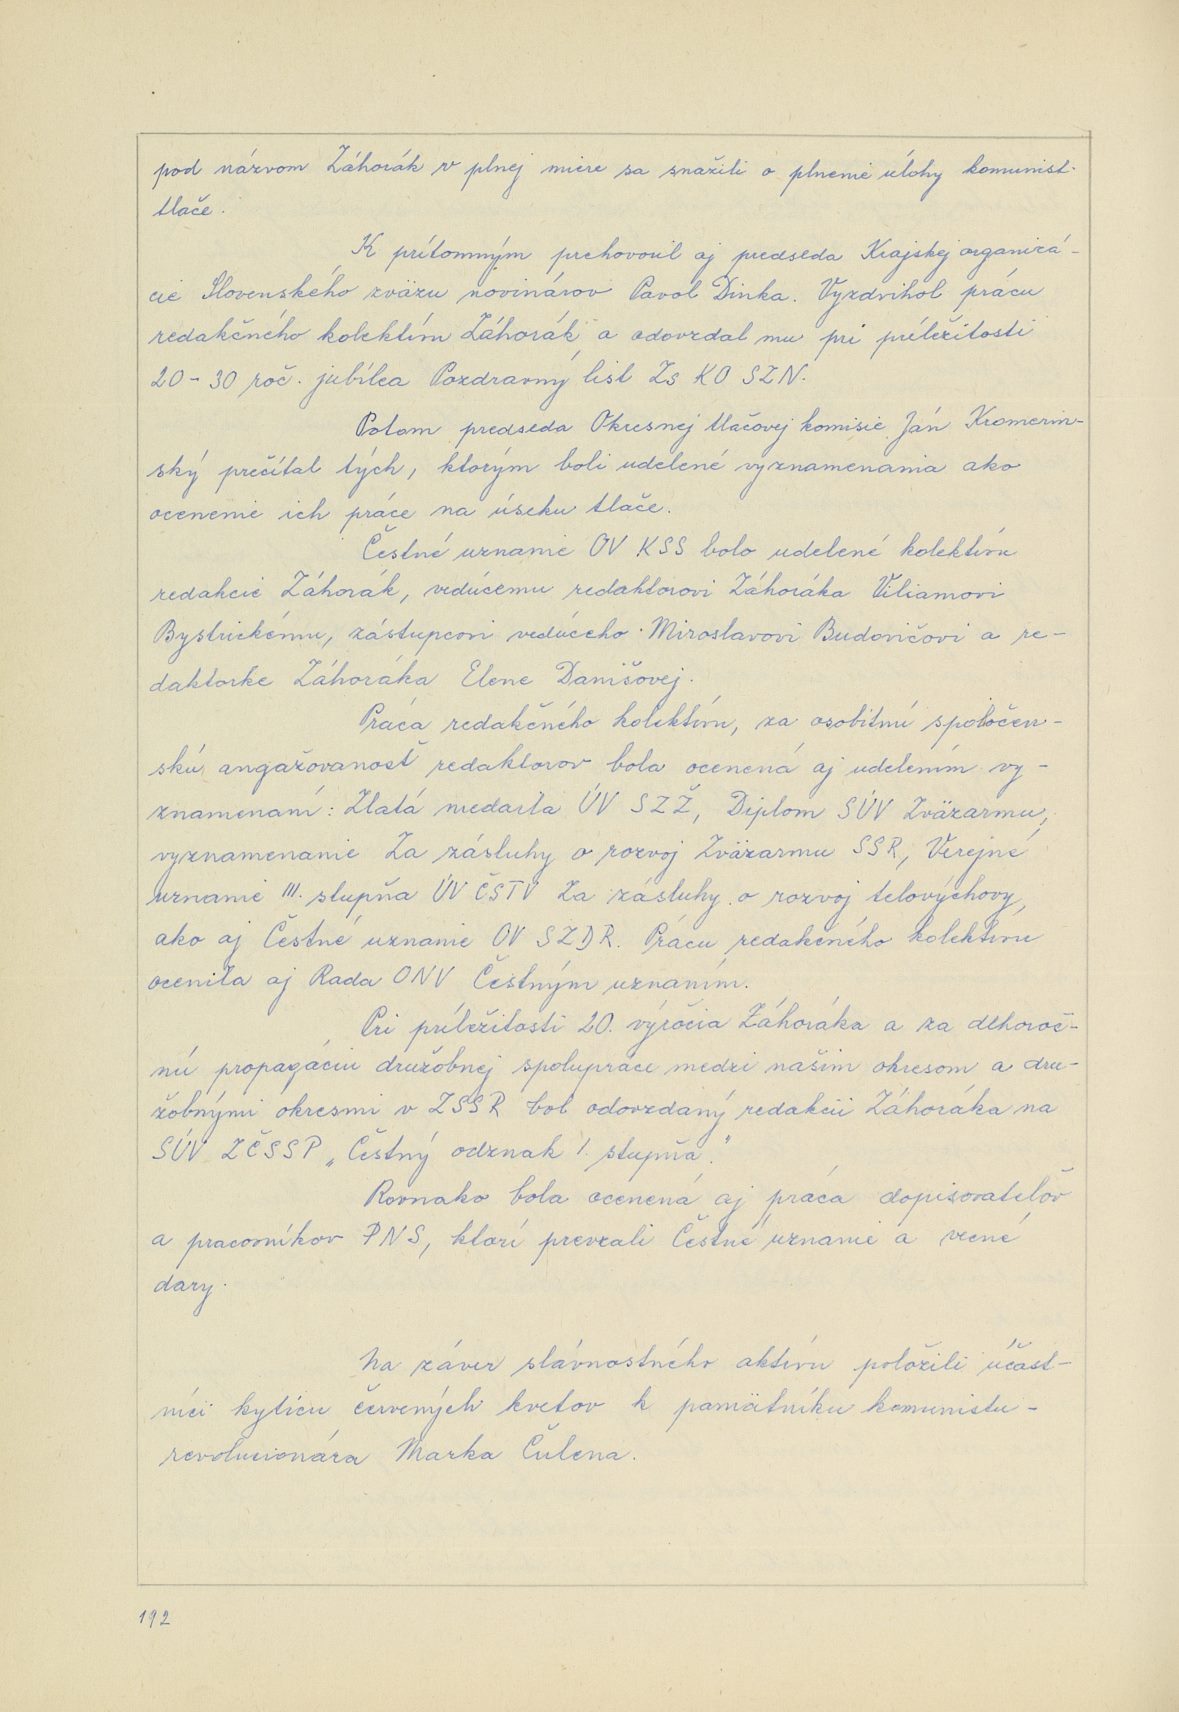 pod názvom Záhorák v plnej miere sa snažili o plnenie úlohy komunist.
tlače.
K prítomným prehovoril aj predseda Krajskej organizá-
cie Slovenského zväzu novinárov Pavol Dinka. Vyzdvihol prácu
redakčného kolektívu Záhorák a odovzdal mu pri príležitosti
20-30 roč. jubilea Pozdravný list Zs KO SZN.
Potom predseda Okresnej tlačovej komisie Ján Kromerin-
ský prečítal tých, ktorým boli udelené vyznamenania ako
ocenenie ich práce na úseku tlače.
Čestné uznanie OV KSS bolo udelené kolektívu
redakcie Záhorák, vedúcemu redaktorovi Záhoráka Viliamovi
Bystrickému, zástupcovi vedúceho Miroslavovi Budovičovi a re-
daktorke Záhoráka Elene Danišovej.
Práca redakčného kolektívu, za osobitnú spoločen-
skú angažovanosť redaktorov bola ocenená aj udelením vy-
znamenaní: Zlatá medaila ÚV SZŽ, Diplom SÚV Zväzarmu,
vyznamenanie Za zásluhy o rozvoj Zväzarmu SSR, Verejné
uznanie III. stupňa ÚV ČSTV Za zásluhy o rozvoj telovýchovy,
ako aj Čestné uznanie OV SZDR. Prácu redakčného kolektívu
ocenila aj Rada ONV Čestným uznaním.
Pri príležitosti 20. výročia Záhoráka a za dlhoroč-
nú propagáciu družobnej spolupráce medzi našim okresom a dru-
žobnými okresmi v ZSSR bol odovzdaný redakcii Záhoráka na
SÚV ZČSSP „Čestný odznak I. stupňa."
Rovnako bola ocenená aj práca dopisovateľov
a pracovníkov PNS, ktorí prevzali Čestné uznanie a vecné
dary.
Na záver slávnostného aktívu položili účast-
níci kyticu červených kvetov k pamätníku komunistu-
revolucionára Marka Čulena.
192